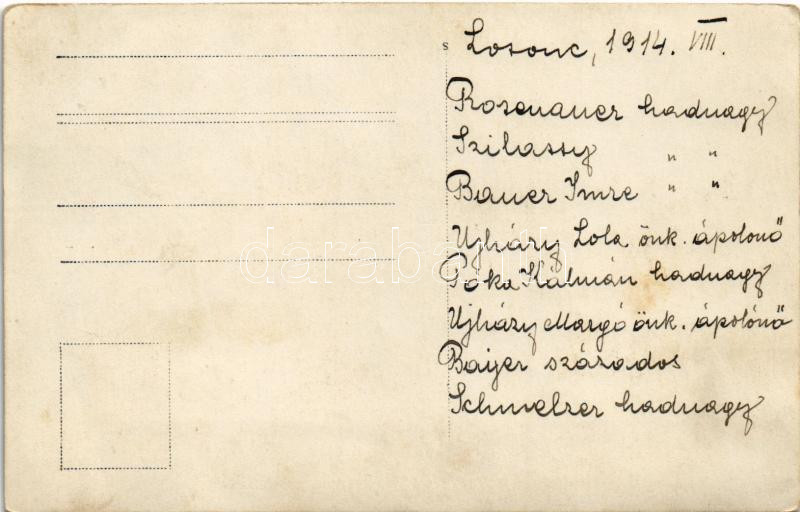 Losonc, 1914. VIII.
Rosenauer hadnagy
Szilassy " "
Bauer Imre " "
Ujházy Lola önk. ápolónő
Póka Kálmán hadnagy
Ujházy Margó önk. ápolónő
Baijer százados
Schmelzer hadnagy